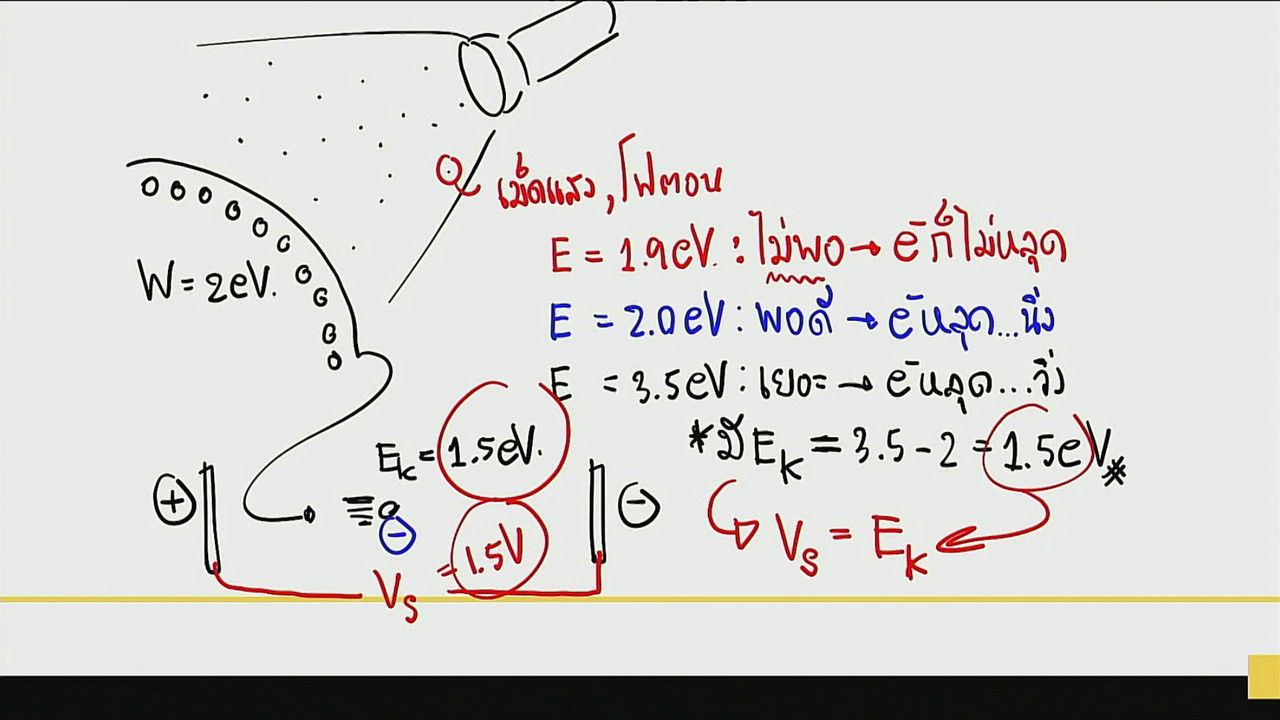 เม็ดแสง, โฟตอน
E = 1.9eV. : ไม่พอ → e⁻ ก็ไม่หลุด
W = 2eV.
E = 2.0eV : พอดี → e⁻ หลุด...นิ่ง
E = 3.5eV : เยอะ → e⁻ หลุด...วิ่ง
*มี Eₖ = 3.5 - 2 = 1.5eV*
Eₖ = 1.5eV.
+ - -
Vₛ = Eₖ
Vₛ = 1.5V